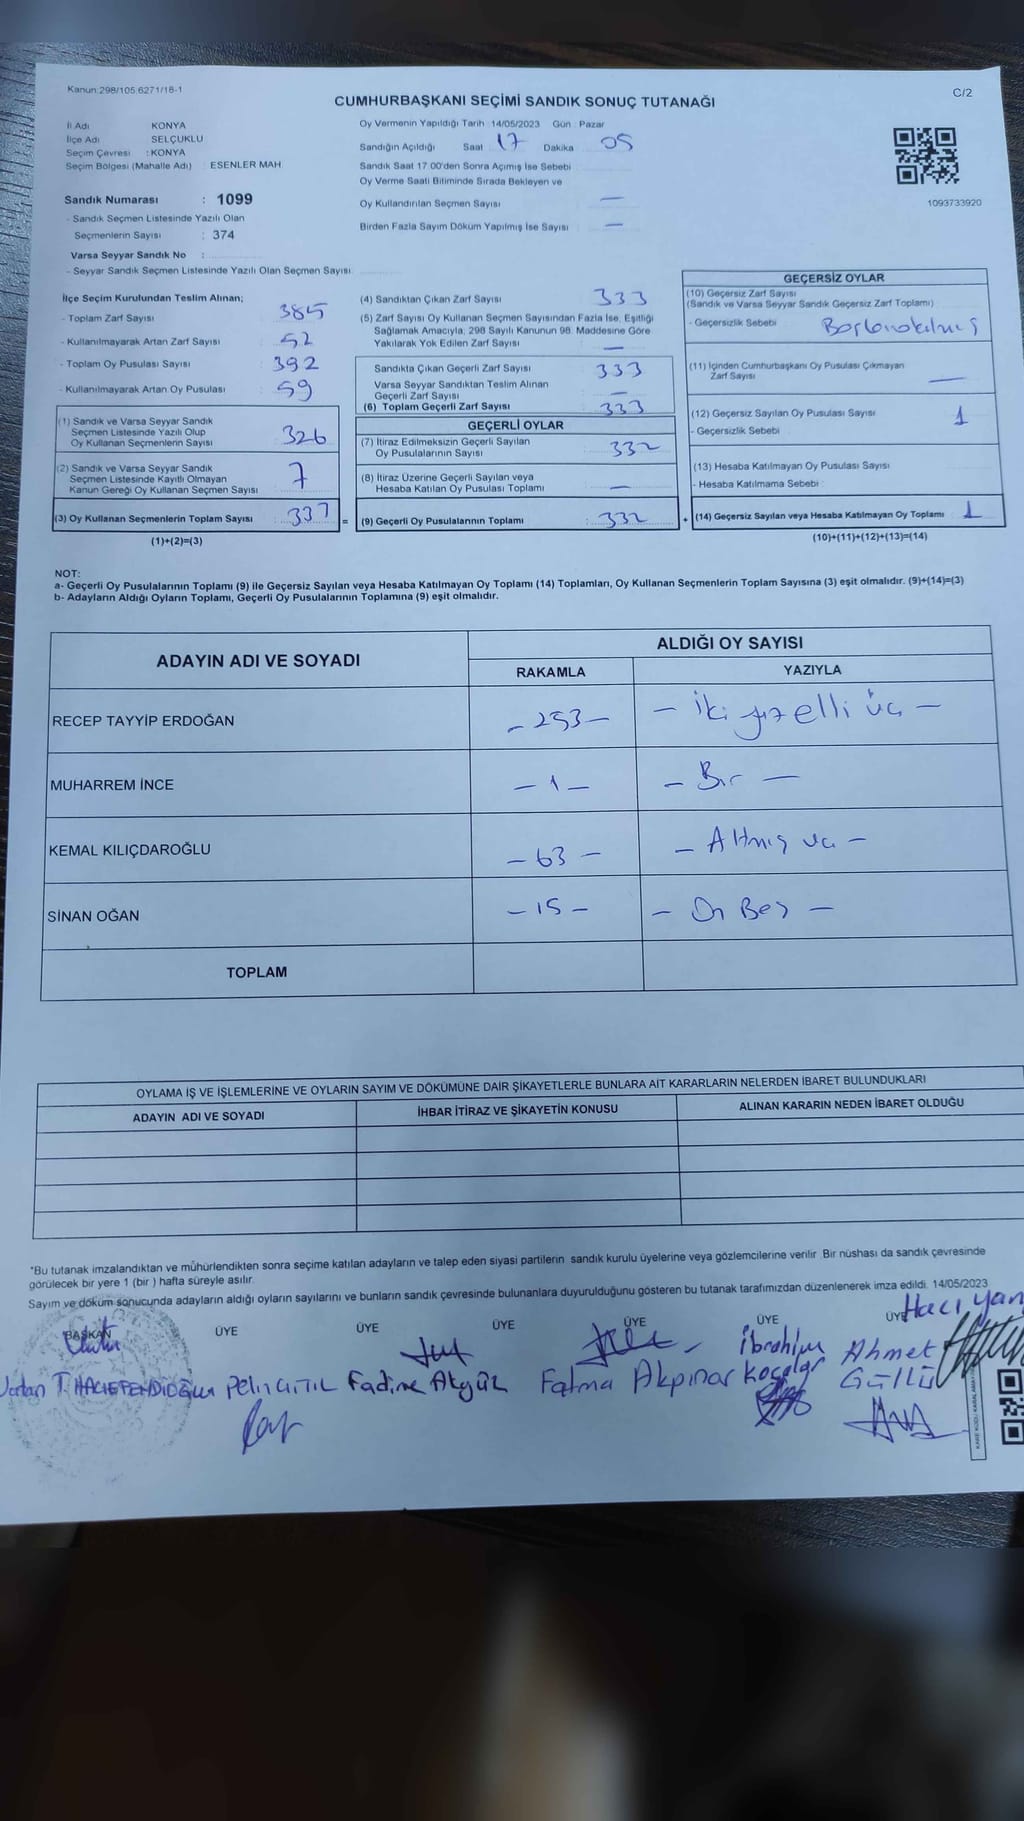 Kanun:298/105.6271/16-1
C/2
CUMHURBAŞKANI SEÇİMİ SANDIK SONUÇ TUTANAĞI
İl Adı KONYA
İlçe Adı SELÇUKLU
Seçim Çevresi : KONYA
Seçim Bölgesi (Mahalle Adı) : ESENLER MAH.
Oy Vermenin Yapıldığı Tarih :14/05/2023 Gün : Pazar
Sandığın Açıldığı Saat 17 Dakika 05
Sandık Saat 17.00'den Sonra Açımış İse Sebebi
Oy Verme Saati Bitiminde Sırada Bekleyen ve
Oy Kullandırılan Seçmen Sayısı —
Birden Fazla Sayım Döküm Yapılmış İse Sayısı —
1093733920
Sandık Numarası : 1099
- Sandık Seçmen Listesinde Yazılı Olan
Seçmenlerin Sayısı : 374
Varsa Seyyar Sandık No :
- Seyyar Sandık Seçmen Listesinde Yazılı Olan Seçmen Sayısı
İlçe Seçim Kurulundan Teslim Alınan;
- Toplam Zarf Sayısı : 385
- Kullanılmayarak Artan Zarf Sayısı : 52
- Toplam Oy Pusulası Sayısı : 392
- Kullanılmayarak Artan Oy Pusulası : 59
(1) Sandık ve Varsa Seyyar Sandık
Seçmen Listesinde Yazılı Olup
Oy Kullanan Seçmenlerin Sayısı 326
(2) Sandık ve Varsa Seyyar Sandık
Seçmen Listesinde Kayıtlı Olmayan
Kanun Gereği Oy Kullanan Seçmen Sayısı 7
(3) Oy Kullanan Seçmenlerin Toplam Sayısı : 333 =
(1)+(2)=(3)
(4) Sandıktan Çıkan Zarf Sayısı 333
(5) Zarf Sayısı Oy Kullanan Seçmen Sayısından Fazla İse, Eşitliği
Sağlamak Amacıyla, 298 Sayılı Kanunun 98. Maddesine Göre
Yakılarak Yok Edilen Zarf Sayısı —
Sandıkta Çıkan Geçerli Zarf Sayısı : 333
Varsa Seyyar Sandıktan Teslim Alınan
Geçerli Zarf Sayısı —
(6) Toplam Geçerli Zarf Sayısı : 333
GEÇERLİ OYLAR
(7) İtiraz Edilmeksizin Geçerli Sayılan
Oy Pusulalarının Sayısı : 332
(8) İtiraz Üzerine Geçerli Sayılan veya
Hesaba Katılan Oy Pusulası Toplamı : —
(9) Geçerli Oy Pusulalarının Toplamı : 332 +
GEÇERSİZ OYLAR
(10) Geçersiz Zarf Sayısı
(Sandık ve Varsa Seyyar Sandık Geçersiz Zarf Toplamı)
- Geçersizlik Sebebi :
(11) İçinden Cumhurbaşkanı Oy Pusulası Çıkmayan
Zarf Sayısı —
(12) Geçersiz Sayılan Oy Pusulası Sayısı : 1
- Geçersizlik Sebebi :
(13) Hesaba Katılmayan Oy Pusulası Sayısı
- Hesaba Katılmama Sebebi :
(14) Geçersiz Sayılan veya Hesaba Katılmayan Oy Toplamı : 1
(10)+(11)+(12)+(13)=(14)
NOT:
a- Geçerli Oy Pusulalarının Toplamı (9) ile Geçersiz Sayılan veya Hesaba Katılmayan Oy Toplamı (14) Toplamları, Oy Kullanan Seçmenlerin Toplam Sayısına (3) eşit olmalıdır. (9)+(14)=(3)
b- Adayların Aldığı Oyların Toplamı, Geçerli Oy Pusulalarının Toplamına (9) eşit olmalıdır.
ADAYIN ADI VE SOYADI
ALDIĞI OY SAYISI
RAKAMLA YAZIYLA
RECEP TAYYİP ERDOĞAN - 253 - - iki yüz elli üç -
MUHARREM İNCE - 1 - - Bir -
KEMAL KILIÇDAROĞLU - 63 - - Altmış üç -
SİNAN OĞAN - 15 - - On Beş -
TOPLAM
OYLAMA İŞ VE İŞLEMLERİNE VE OYLARIN SAYIM VE DÖKÜMÜNE DAİR ŞİKAYETLERLE BUNLARA AİT KARARLARIN NELERDEN İBARET BULUNDUKLARI
ADAYIN ADI VE SOYADI İHBAR İTİRAZ VE ŞİKAYETİN KONUSU ALINAN KARARIN NEDEN İBARET OLDUĞU
*Bu tutanak imzalandıktan ve mühürlendikten sonra seçime katılan adayların ve talep eden siyasi partilerin sandık kurulu üyelerine veya gözlemcilerine verilir. Bir nüshası da sandık çevresinde
görülecek bir yere 1 (bir ) hafta süreyle asılır.
Sayım ve döküm sonucunda adayların aldığı oyların sayılarını ve bunların sandık çevresinde bulunanlara duyurulduğunu gösteren bu tutanak tarafımızdan düzenlenerek imza edildi. 14/05/2023
BAŞKAN ÜYE ÜYE ÜYE ÜYE ÜYE ÜYE
Hacı yan
T. HACIEFENDİOĞLU Pelin Fadime Akgül Fatma Akpınar İbrahim Koçalar Ahmet Güllü